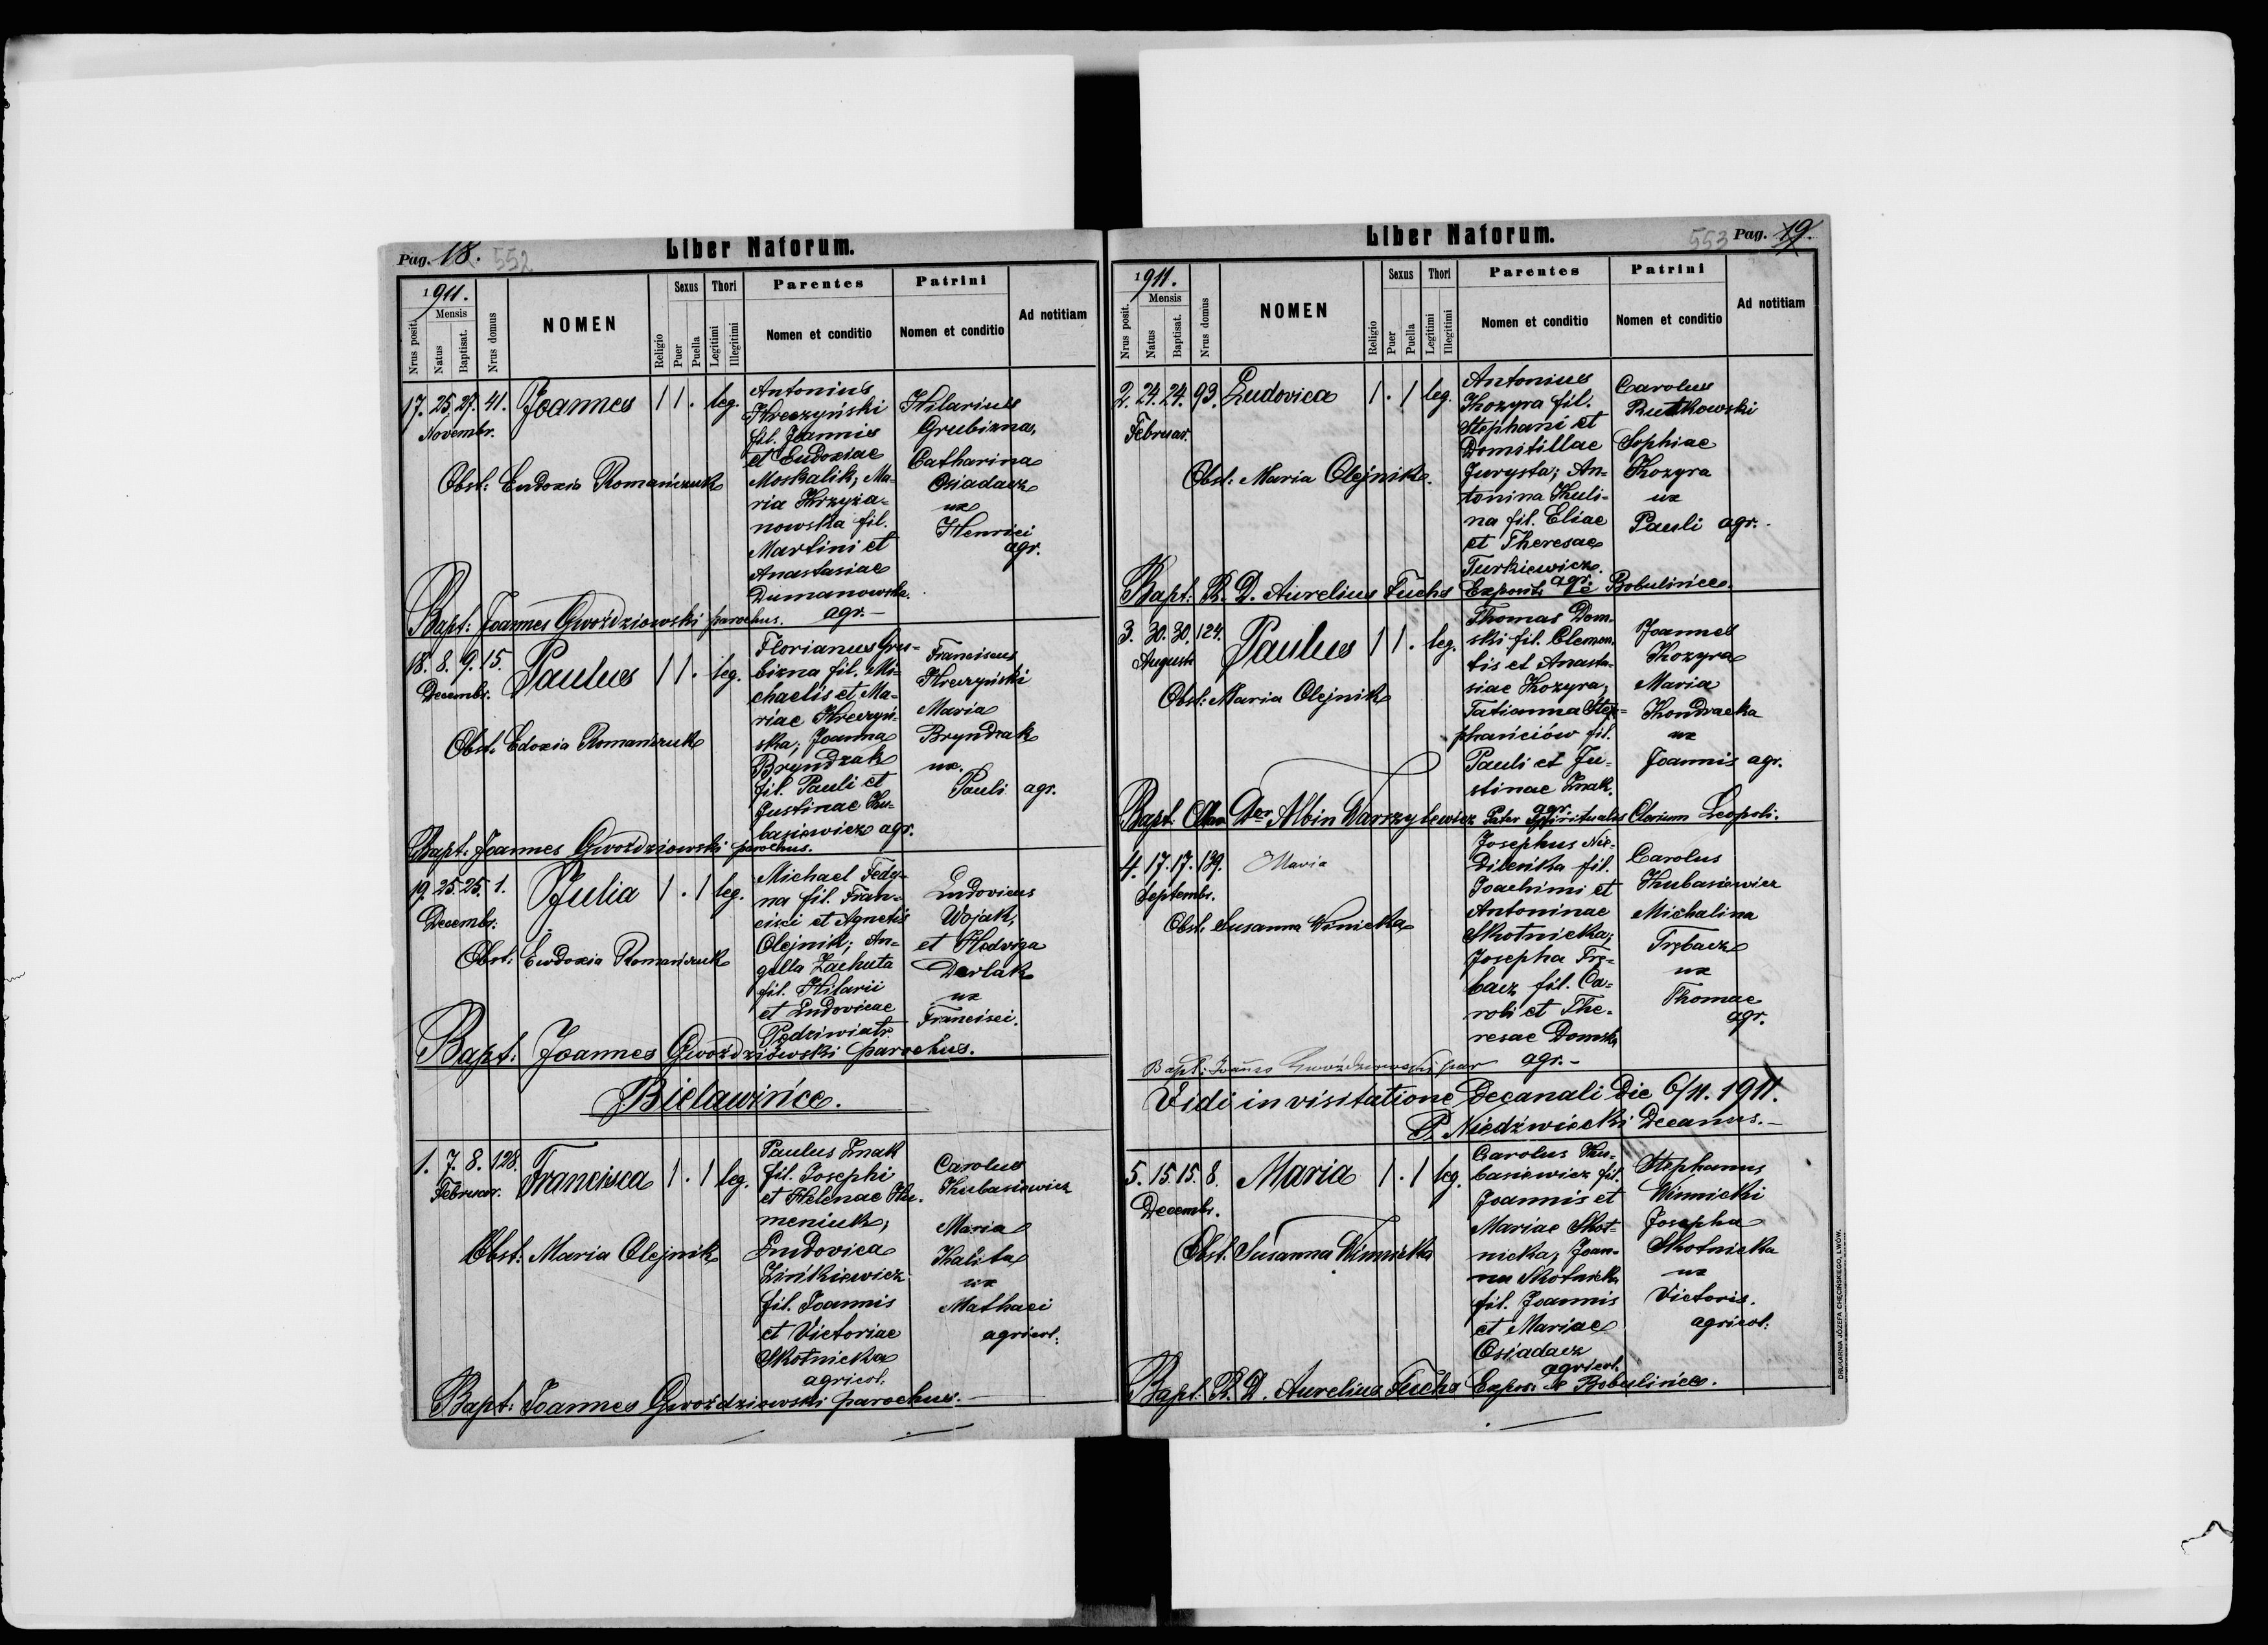 Pag. 18. 552
Liber Natorum.
1911.
Nrus posit.
Mensis
Natus
Baptisat.
Nrus domus
NOMEN
Religio
Sexus
Puer
Puella
Thori
Legitimi
Illegitimi
Parentes
Nomen et conditio
Patrini
Nomen et conditio
Ad notitiam
17. 25. 27. 41. Joannes 1 1 . leg.
Novembr.
Obst: Eudoxia Romańczuk
Antonius
Kreczyński
fil. Joannis
et Eudoxiae
Moskalik, Ma-
ria Krzyża-
nowska fil.
Martini et
Anastasiae
Dumanowska.
agr. -
Hilarius
Grubizna,
Catharina
Osiadacz
ux
Henrici
agr.
Bapt: Joannes Gwoździowski parochus.
18. 8. 9. 15. Paulus 1 1 . leg.
Decembr.
Obst. Edoxia Romańczuk
Florianus Gru-
bizna fil. Mi-
chaelis et Ma-
riae Kreczyń-
ska, Joanna
Bryndzak
fil. Pauli et
Justinae Ku-
basiewicz agr.
Franciscus
Kreczyński
Maria
Bryndzak
ux.
Pauli agr.
Bapt: Joannes Gwoździowski parochus.
19. 25. 25. 1. Julia 1 . 1 leg.
Decembr.
Obst: Eudoxia Romańczuk
Michael Fedy-
na fil. Fran-
cisci et Agnetis
Olejnik; An-
gella Zachuta
fil. Hilarii
et Ludovicae
Pędziwiatr
Ludovicus
Wojak,
et Hedviga
Derlak
ux
Francisci.
Bapt: Joannes Gwoździowski parochus.
Bielawińce.
1. 7. 8. 128. Francisca 1 . 1 leg.
Februar.
Obst: Maria Olejnik
Paulus Znak
fil. Josephi
et Helenae Hu-
meniuk,
Ludovica
Zińkiewicz
fil. Joannis
et Victoriae
Skotnicka
agricol.
Carolus
Kubasiewicz
Maria
Kalita
ux
Mathaei
agricol:
Bapt: Joannes Gwoździowski parochus.
Liber Natorum.
553 Pag. 19.
1911.
Nrus posit.
Mensis
Natus
Baptisat.
Nrus domus
NOMEN
Religio
Sexus
Puer
Puella
Thori
Legitimi
Illegitimi
Parentes
Nomen et conditio
Patrini
Nomen et conditio
Ad notitiam
2. 24. 24. 93. Ludovica 1 . 1 leg.
Februar.
Obst: Maria Olejnik.
Antonius
Kozyra fil.
Stephani et
Domitillae
Jurysta; An-
tonina Kuli-
na fil. Eliae
et Theresae
Turkiewicz.
agr.
Carolus
Rutkowski
Sophiae
Kozyra
ux
Pauli agr.
Bapt: R. D. Aurelius Fuchs Exposit. de Bobulińce.
3. 30. 30. 124. Paulus 1 1 . leg.
Augusti
Obst: Maria Olejnik
Thomas Dom-
ski fil. Clemen-
tis et Anasta-
siae Kozyra,
Tatianna Ste-
phańciów fil.
Pauli et Ju-
stinae Znak.
agr.
Joannes
Kozyra
Maria
Kondracka
ux
Joannis agr.
Bapt. Dr Albin Warszylewicz Pater Spiritualis Clericum Leopoli.
4. 17. 17. 139. Maria
Septembr.
Obst. Susanna Winicka
Josephus Nie-
dileńka fil.
Joachimi et
Antoninae
Skotnicka;
Josepha Trę-
bacz fil. Ca-
roli et The-
resae Domska
agr. -
Carolus
Kubasiewicz
Michalina
Trębacz
ux
Thomae
agr.
Bapt: Joannes Gwoździowski par
Vidi in visitatione Decanali Die 6/11. 1911.
P. Niedźwiecki Decanus. -
5. 15. 15. 8. Maria 1 . 1 leg.
Decembr.
Obst. Susanna Winnicka
Carolus Ku-
basiewicz fil.
Joannis et
Mariae Skot-
nicka; Joan-
na Skotnicka
fil. Joannis
et Mariae
Osiadacz
agricol.
Stephanus
Winnicki
Josepha
Skotnicka
ux
Victoris.
agricol:
Bapt. R. D. Aurelius Fuchs Expos. de Bobulińce.
DRUKARNIA JÓZEFA CHĘCIŃSKIEGO, LWÓW.